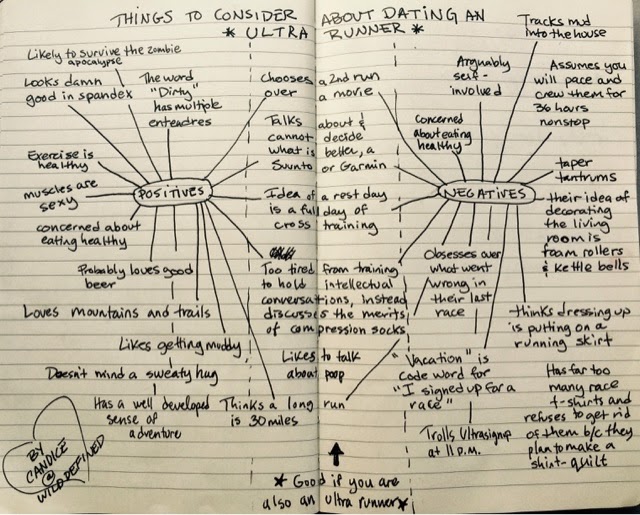 THINGS TO CONSIDER ABOUT DATING AN
* ULTRA RUNNER *
Likely to survive the zombie
apocalypse
Looks damn
good in spandex
The word
"Dirty"
has multiple
entendres
Exercise is
healthy
muscles are
sexy
concerned about
eating healthy
Probably loves good
beer
Loves mountains and trails
Likes getting muddy
Doesn't mind a sweaty hug
Has a well developed
sense of
adventure
POSITIVES
Chooses a 2nd run
over a movie
Talks about &
cannot decide
what is better, a
Suunto or Garmin
Idea of a rest day
is a full day of
cross training
Too tired from training
to hold intellectual
conversations, instead
discusses the merits
of compression socks
Likes to talk
about poop
Thinks a long run
is 30 miles
* Good if you are
also an ultra runner *
NEGATIVES
Arguably
self-
involved
concerned
about eating
healthy
Tracks mud
into the house
Assumes you
will pace and
crew them for
36 hours
nonstop
taper
tantrums
their idea of
decorating
the living
room is
foam rollers
& kettle bells
Obsesses over
what went
wrong in
their last
race
Thinks dressing up
is putting on a
running skirt
"Vacation" is
code word for
"I signed up for a
race"
Trolls Ultrasignup
at 11 p.m.
Has far too
many race
t-shirts and
refuses to get rid
of them b/c they
plan to make a
shirt-quilt
BY
CANDICE
@
WILD DEFINED